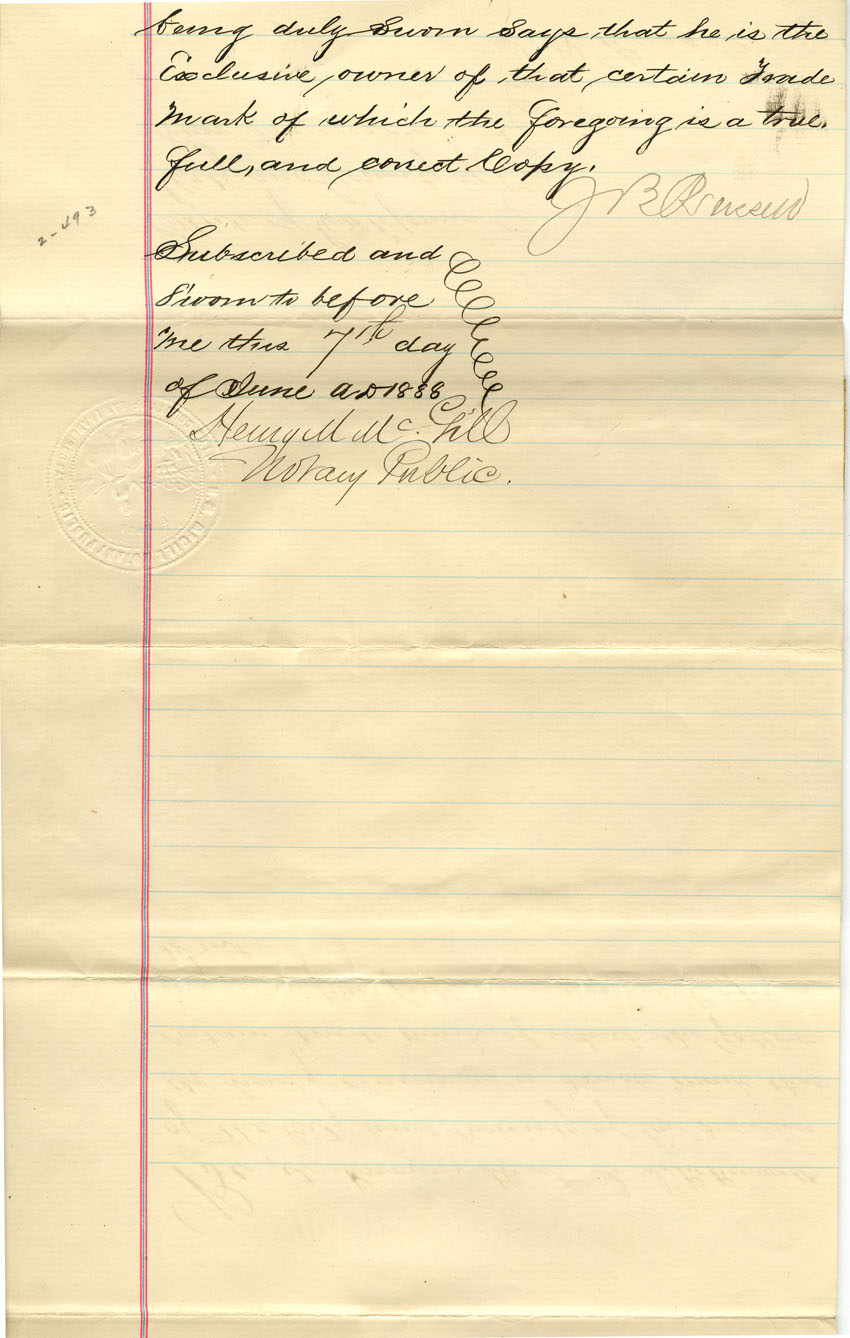 being duly Sworn Says that he is the
Exclusive owner of that certain Trade
Mark of which the foregoing is a true,
full, and correct Copy.
J B
2-493
Subscribed and
Sworn to before
Me this 7th day
of June A.D 1888
Henry M McGill
Notary Public.